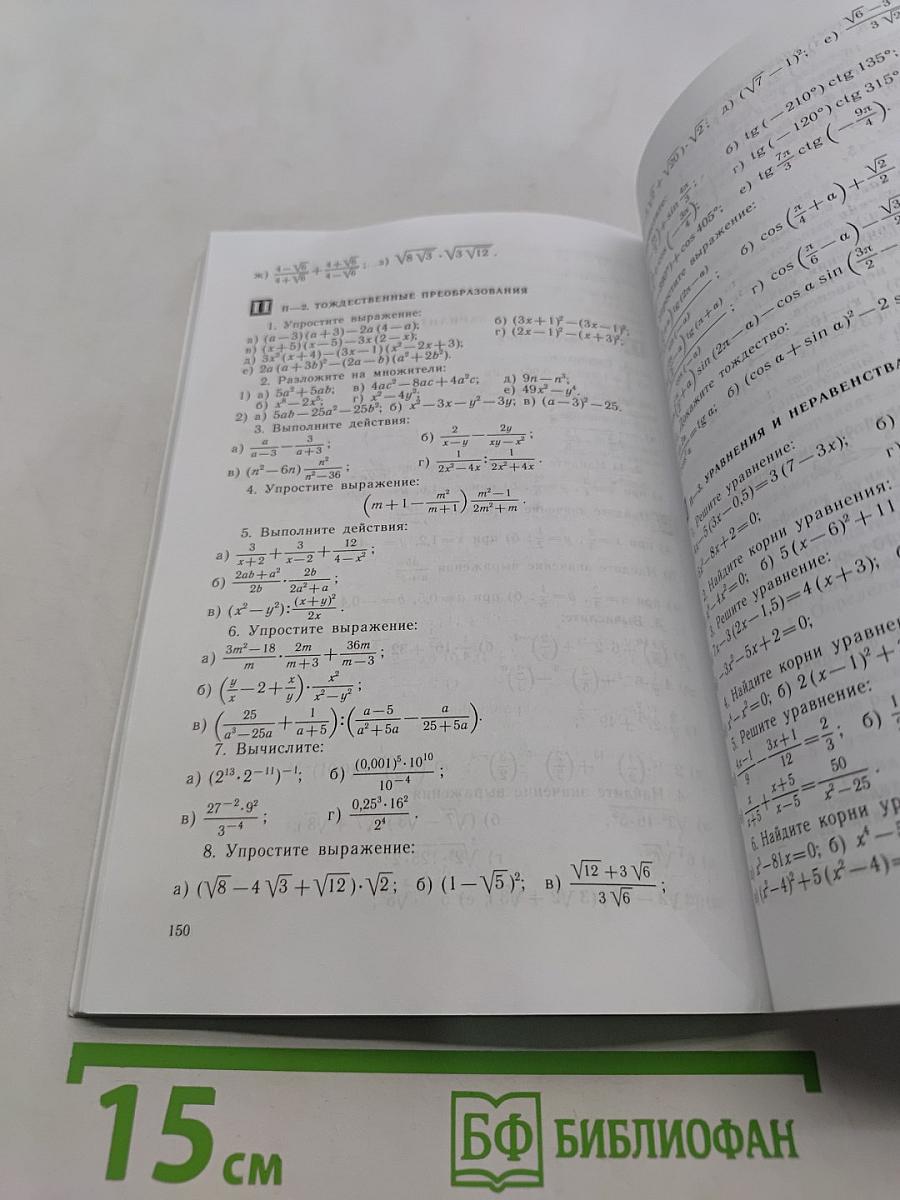 ж) (4−√6)/(4+√6) + (4+√6)/(4−√6); з) √(8√3) · √(3√12).
II П—2. ТОЖДЕСТВЕННЫЕ ПРЕОБРАЗОВАНИЯ
1. Упростите выражение:
а) (a−3)(a+3)−2a(4−a); б) (3x+1)²−(3x−1)²;
в) (x+5)(x−5)−3x(2−x); г) (2x−1)²−(x+3)².
д) 3x²(x+4)−(3x−1)(x²−2x+3);
е) 2a(a+3b)²−(2a−b)(a²+2b²).
2. Разложите на множители:
1) а) 5a²+5ab; в) 4ac²−8ac+4a²c; д) 9n−n³;
б) x⁸−2x⁵; г) x²−4y²; е) 49x²−y⁴.
2) а) 5ab−25a²−25b²; б) x²−3x−y²−3y; в) (a−3)²−25.
3. Выполните действия:
а) a/(a−3) − 3/(a+3); б) 2/(x−y) − 2y/(xy−x²);
в) (n²−6n) n²/(n²−36); г) 1/(2x²−4x) : 1/(2x²+4x).
4. Упростите выражение:
(m+1−m²/(m+1)) (m²−1)/(2m²+m).
5. Выполните действия:
а) 3/(x+2) + 3/(x−2) + 12/(4−x²);
б) (2ab+a²)/2b · 2b/(2a²+a);
в) (x²−y²) : (x+y)²/2x.
6. Упростите выражение:
а) (3m²−18)/m · 2m/(m+3) + 36m/(m−3);
б) (y/x−2+x/y) · x²/(x²−y²);
в) (25/(a³−25a) + 1/(a+5)) : ((a−5)/(a²+5a) − a/(25+5a)).
7. Вычислите:
а) (2¹³·2⁻¹¹)⁻¹; б) (0,001)⁵·10¹⁰/10⁻⁴;
в) 27⁻²·9²/3⁻⁴; г) 0,25³·16²/2⁴.
8. Упростите выражение:
а) (√8−4√3+√12)·√2; б) (1−√5)²; в) (√12+3√6)/3√6;
150
√2; д) (√7−1)²; е)
б) tg(−210°) ctg 135°;
г) tg(−120°) ctg 315°
е) tg 7π/3 ctg(−9π/4).
+cos 405°;
выражение:
б) cos(π/4+α)+√2/2
г) cos(π/6−α)−√3
sin(2π−α)−cos α sin(3π/2−
тождество:
=tg α; б) (cos α+sin α)²−2 s
УРАВНЕНИЯ И НЕРАВЕНСТВА
Решите уравнение:
−5(3x−0,5)=3(7−3x); б)
−8x+2=0; г)
2. Найдите корни уравнения:
−4x²=0; б) 5(x−6)²+11
3. Решите уравнение:
−3(2x−1,5)=4(x+3);
−3x²−5x+2=0;
4. Найдите корни уравне
−x²=0; б) 2(x−1)²+
5. Решите уравнение:
−1/9 − (3x+1)/12 = 2/3; б)
x/(x+5) + (x+5)/(x−5) = 50/(x²−25).
6. Найдите корни ур
−81x=0; б) x⁴−5
(x²−4)²+5(x²−4)=
15 см
БФ БИБЛИОФАН